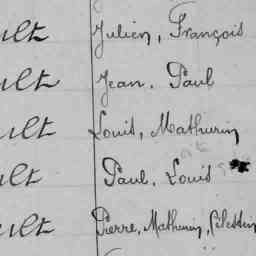 ult Julien, François
ult Jean. Paul
ult Louis, Mathurin
ult Paul. Louis
ult Pierre, Mathurin, Célestin